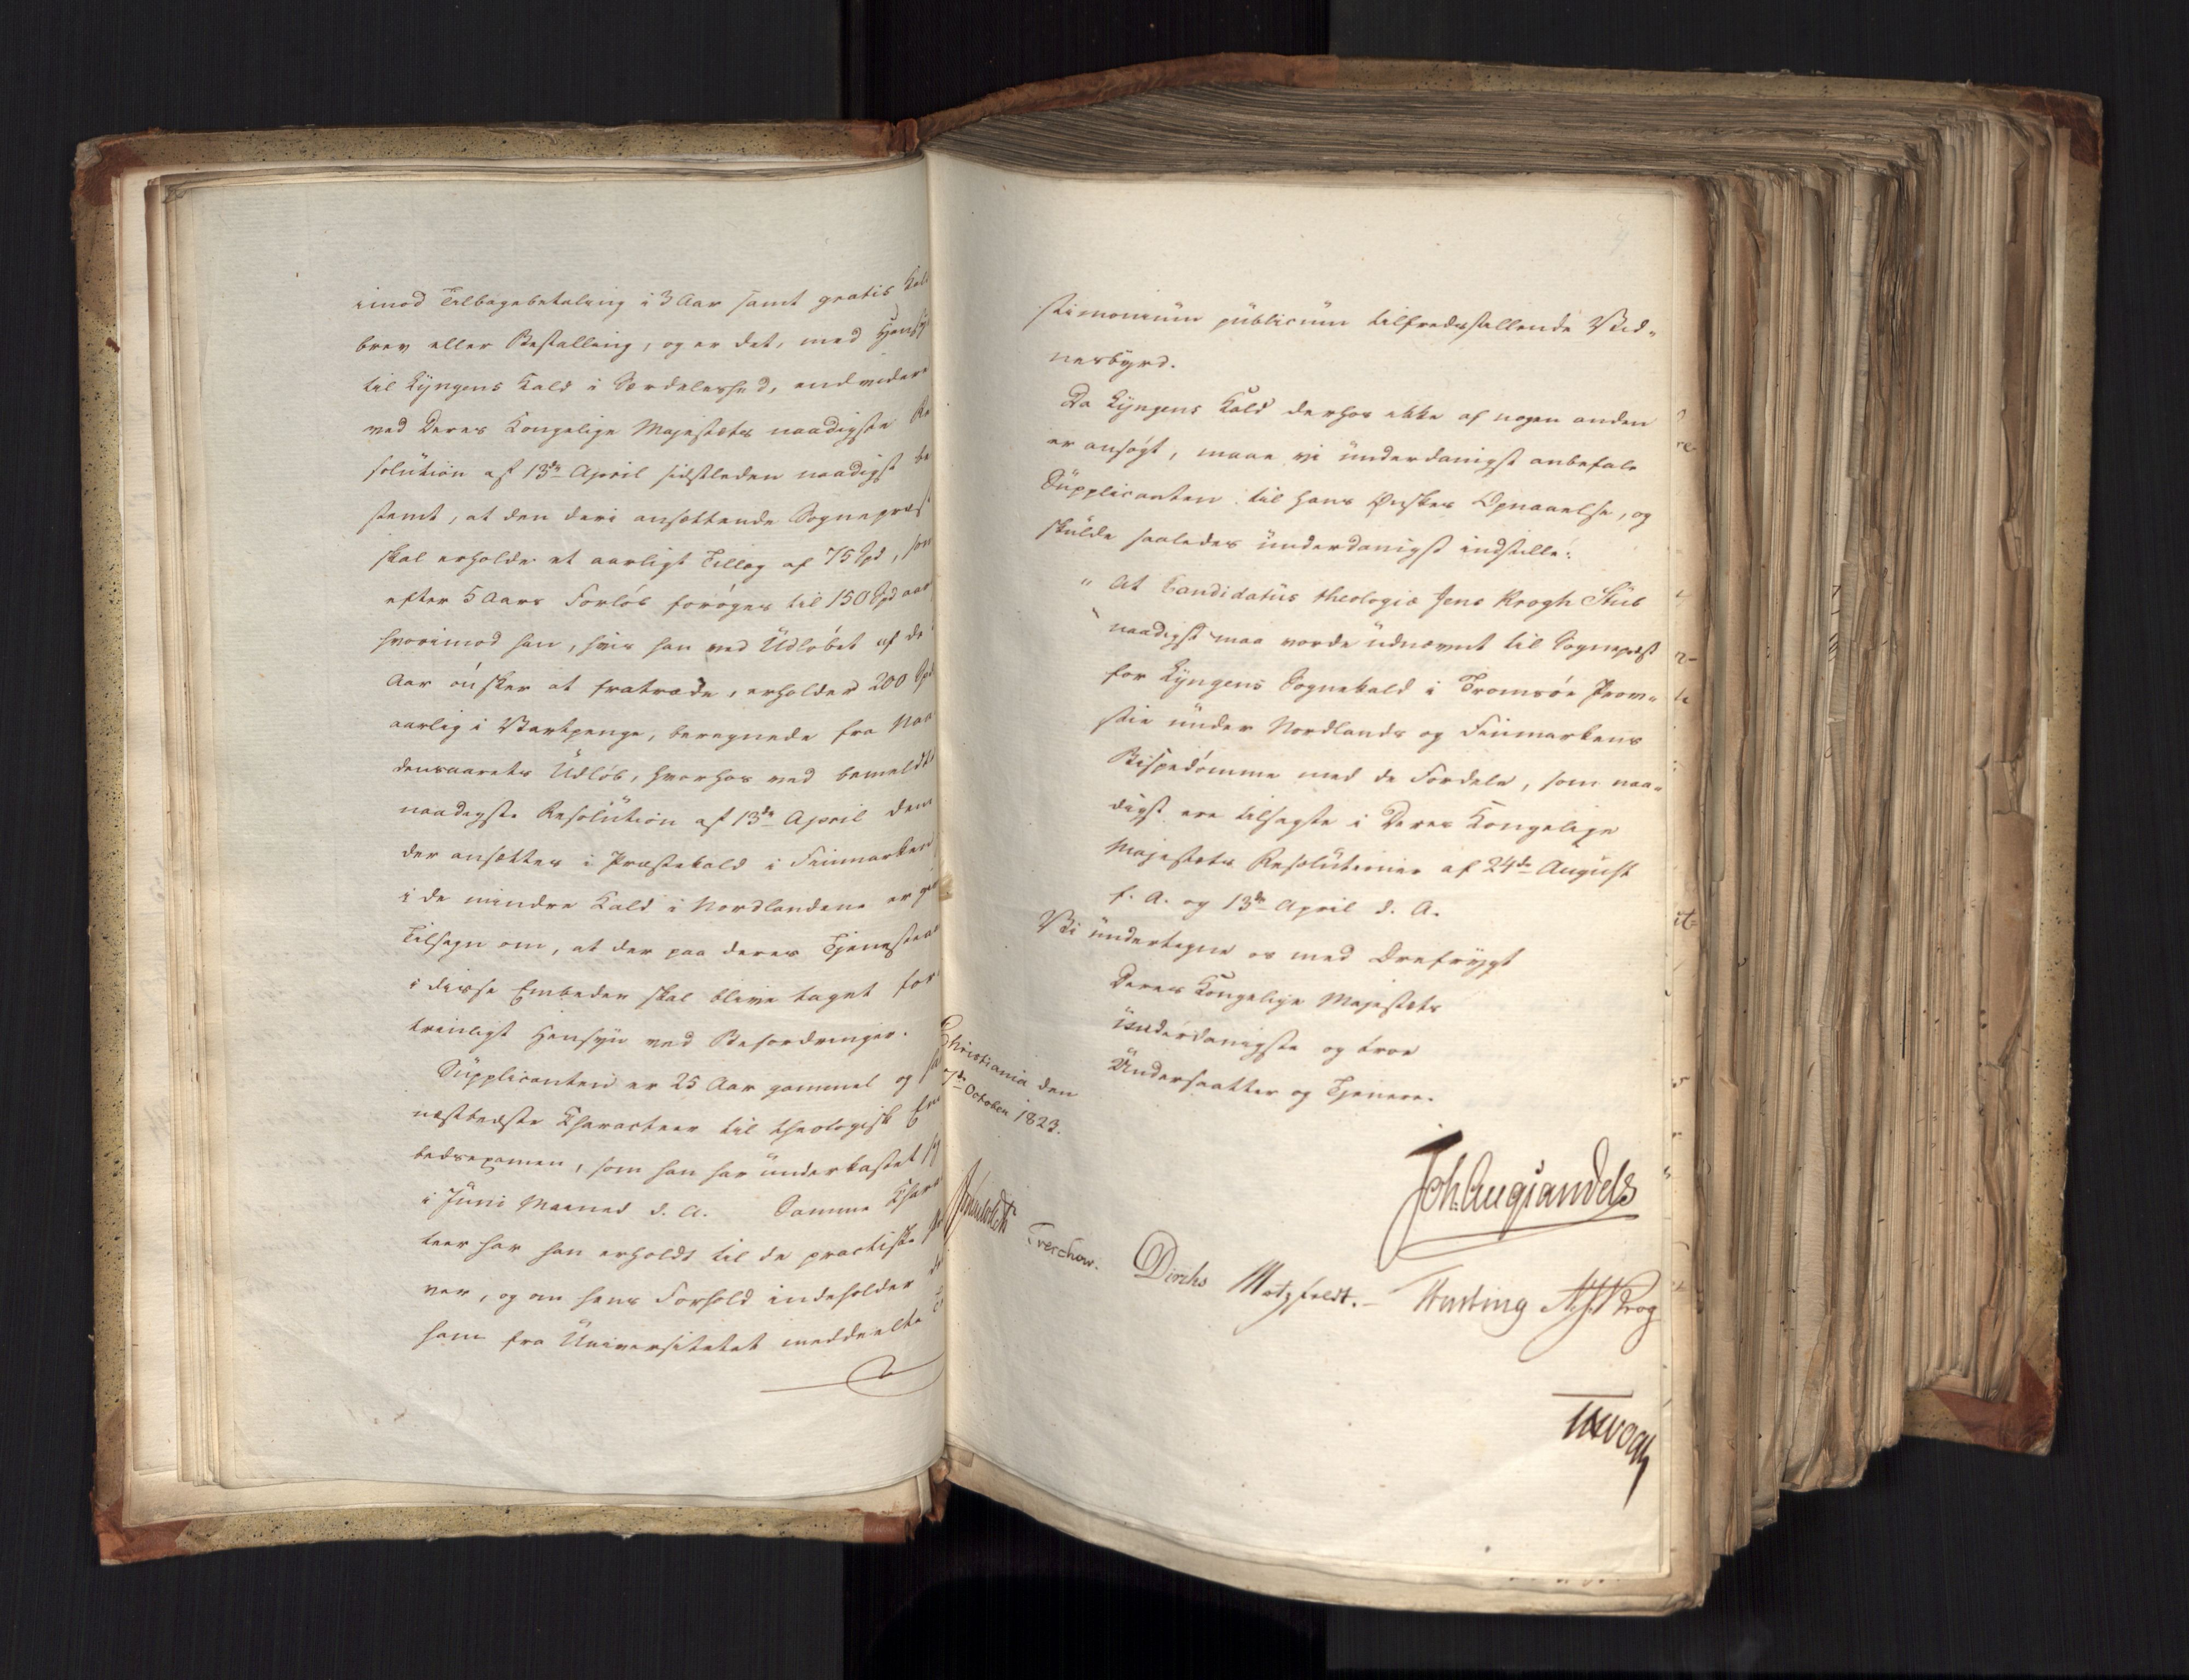 imod Tilbagebetaling i 3 Aar samt gratis Kald
brev eller Bestalling, og er det, med Hensyn
til Lyngens Kald i Særdeleshed, endvidere
ved Deres Kongelige Majestæts naadigste Re
solution af 13de April sidstleden naadigst be
stemt, at den deri ansættende Sognepræst
skal erholde et aarligt Tillæg af 75 Spd, som
efter 5 Aars Forløb forøges til 150 Spd aar
hvorimod han, hvis han ved Udløbet af de
Aar ønsker at fratræde, erholder 200 Spd
aarlig i Vartpenge, beregnede fra Naa
densaarets Udløb, hvorhos ved bemeldte
naadigste Resolution af 13de April dem
der ansættes i Præstekald i Finmarken
i de mindre Kald i Nordlandene er givet
Tilsagn om, at der paa deres Tjenesteaar
i disse Embeder skal blive taget for
trinligt Hensyn ved Befordringer.
Supplicanten er 25 Aar gammel og
næstbedste Characteer til theologisk Em
bedsexamen, som han har underkastet sig
i Juni Maaned d. A. Samme Charac
teer har han erholdt til de practiske Prø
ver, og om hans Forhold indeholder det
ham fra Universitetet meddeelte Te
stimonium publicum tilfredsstillende Vid„
nesbyrd.
Da Lyngens Kald derhos ikke af nogen anden
er ansøgt, maae vi underdanigst anbefale
Supplicanten til hans Ønskes Opnaaelse, og
skulde saaledes underdanigst indstille:
" At Candidatus theologiæ Jens Krogh Stub
naadigst maa vorde udnævnt til Sognepræst
for Lyngens Sognekald i Tromsøe Prov„
stie under Nordlands og Finmarkens
Bispedømme med de Fordele, som naa„
digst ere tilsagte i Deres Kongelige
Majestæts Resolutioner af 24de August
f. A. og 13de April d. A.
Vi undertegne os med Ærefrygt
Deres Kongelige Majestæts
underdanigste og troe
Undersaatter og Tjenere.
Christiania den
7de October 1823.
Joh: Aug: Sandels
Treschow. Diriks Motzfeldt. Krog